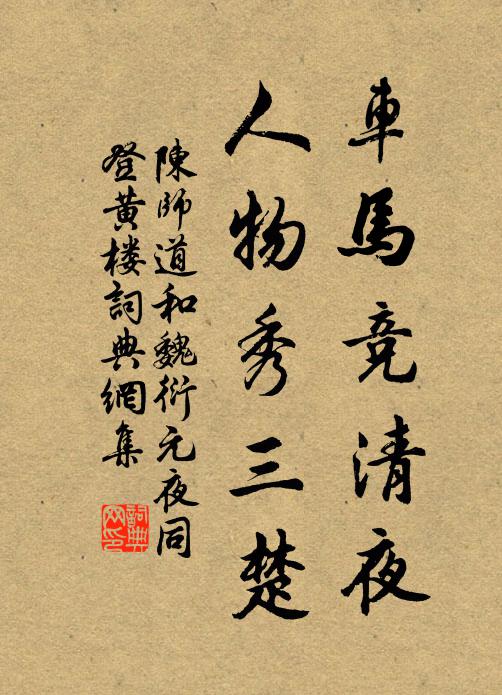 車馬竞清夜
人物秀三楚
陳師道和魏衍元夜同
登黄楼詞典網集
詞典
网印